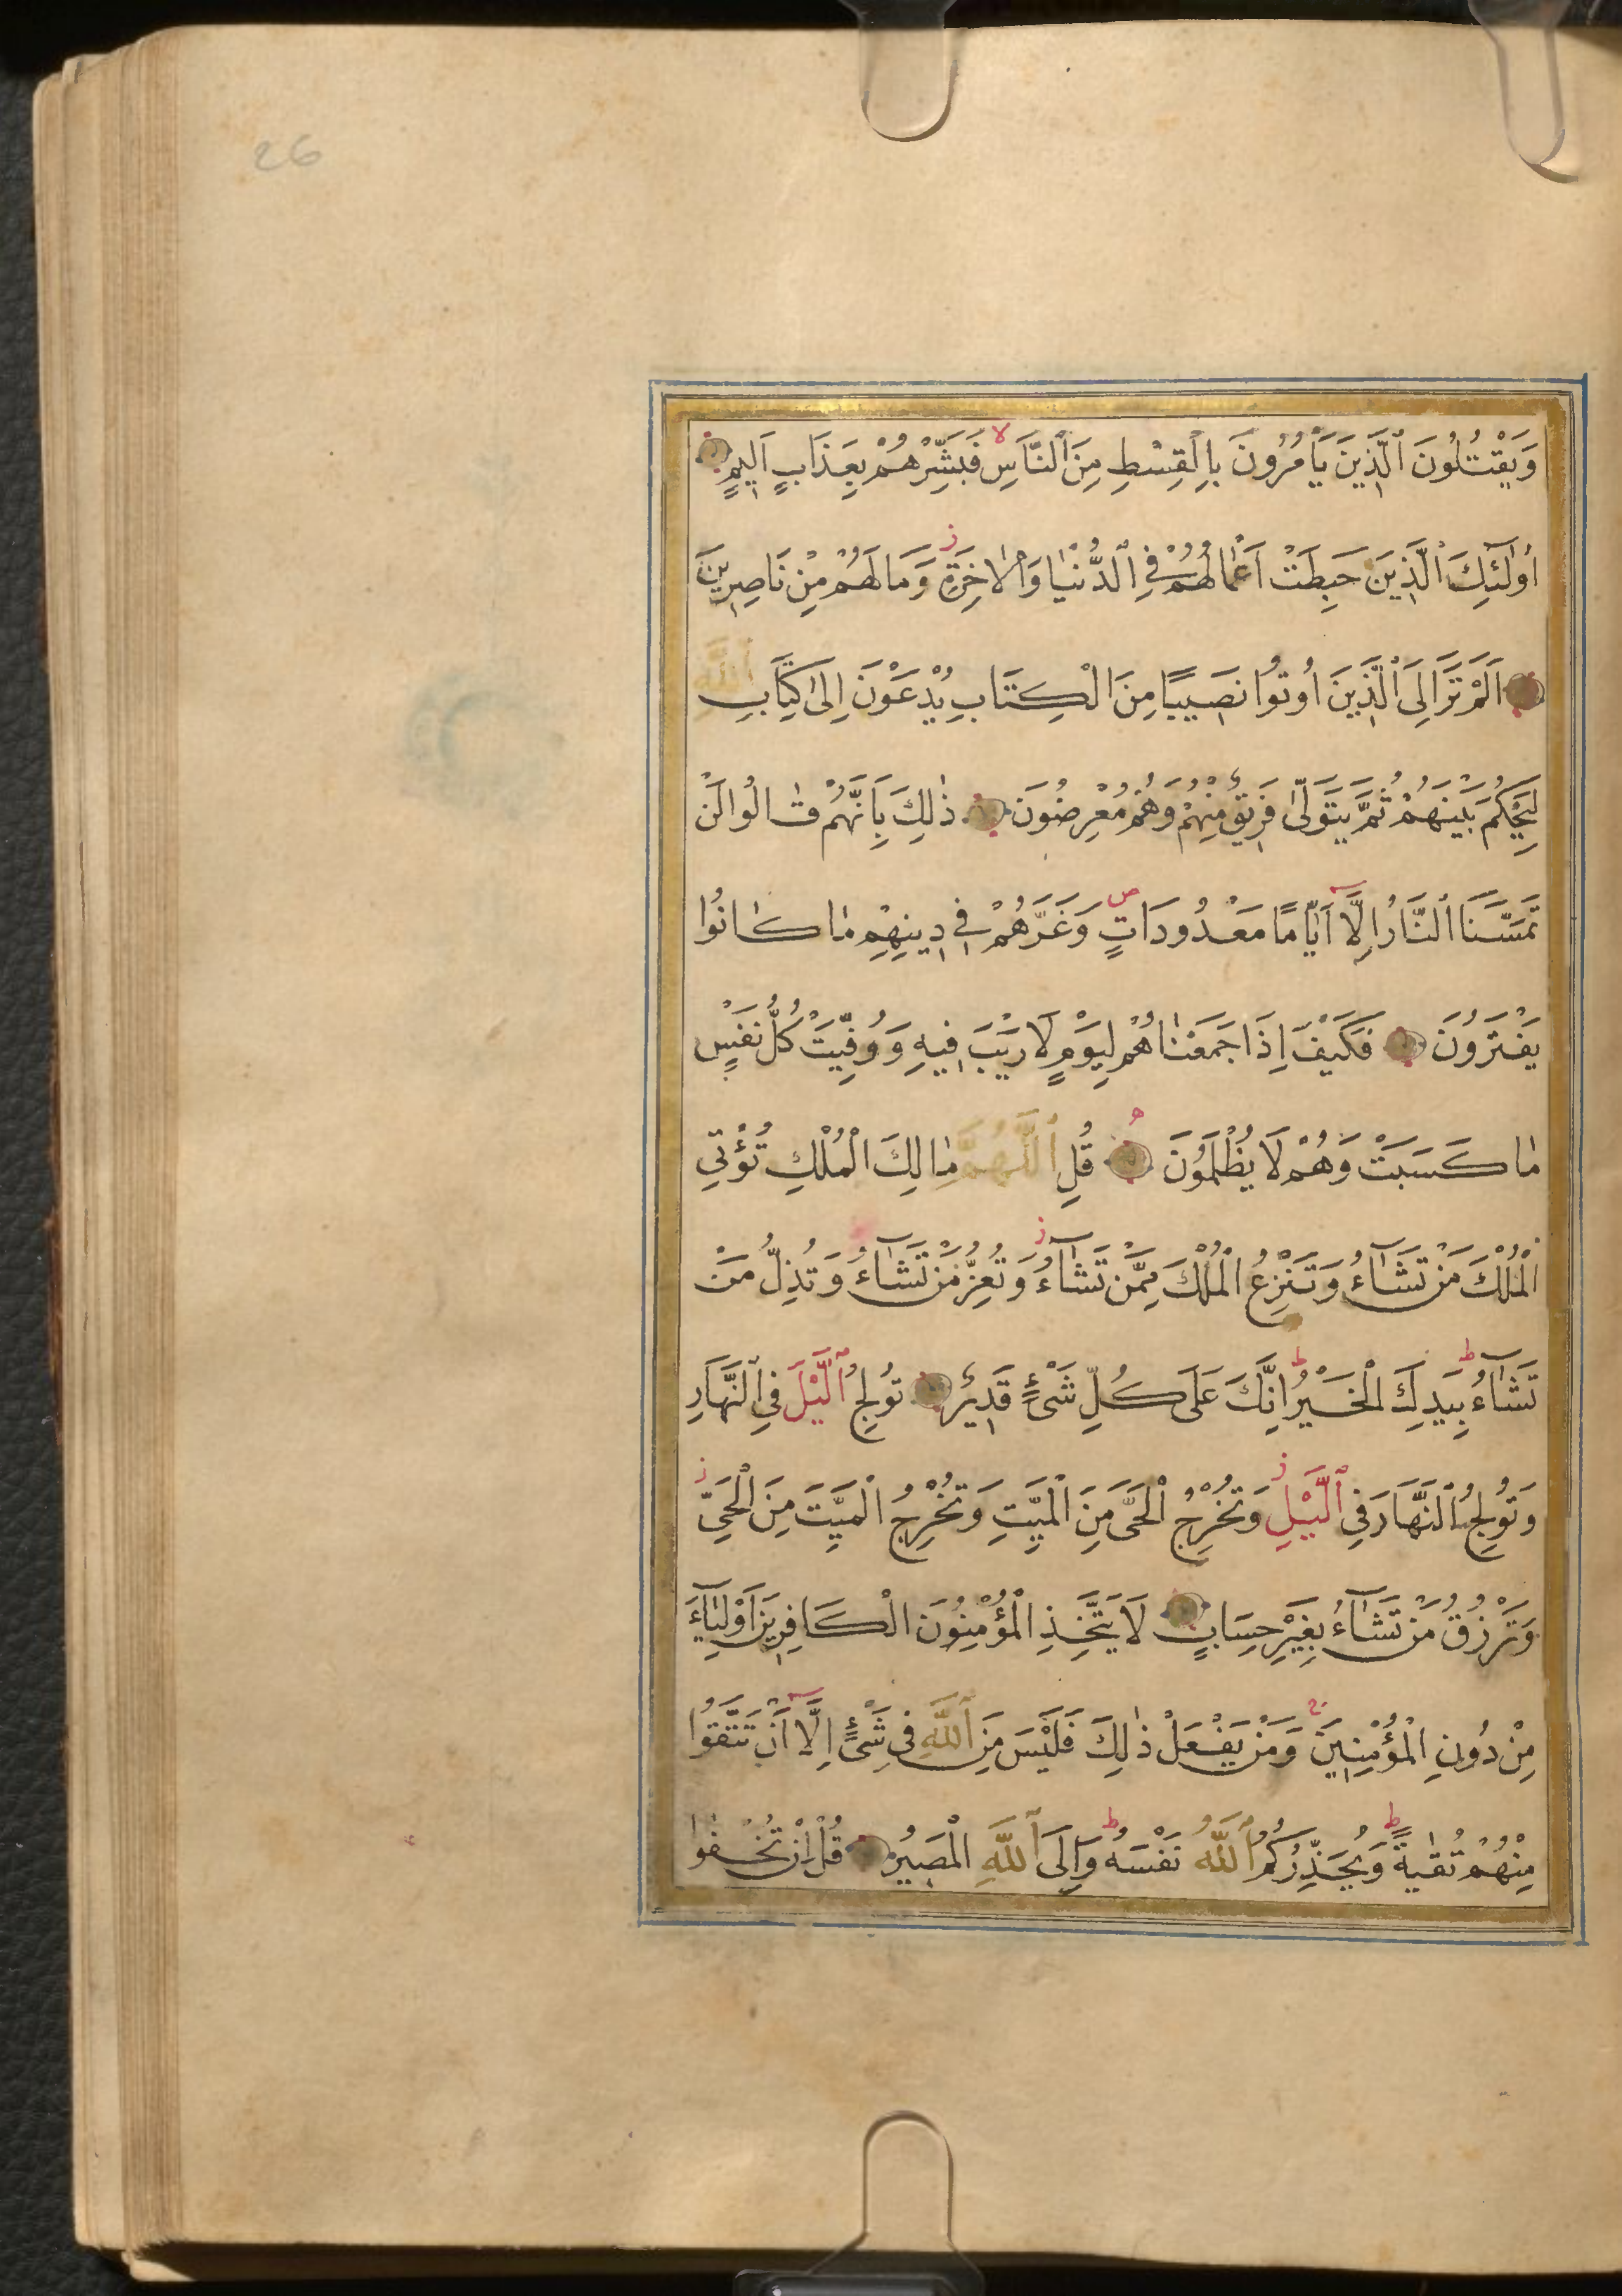 26
وَيَقْتُلُونَ ٱلَّذِينَ يَأْمُرُونَ بِالْقِسْطِ مِنَ ٱلنَّاسِ فَبَشِّرْهُمْ بِعَذَابٍ اَلِيمٍ
اُولٰٓئِكَ ٱلَّذِينَ حَبِطَتْ اَعْمَالُهُمْ فِي ٱلدُّنْيَا وَالْاٰخِرَةِ وَمَا لَهُمْ مِنْ نَاصِرِينَ
اَلَمْ تَرَ اِلَى ٱلَّذِينَ اُوتُوا نَصِيبًا مِنَ الْكِتَابِ يُدْعَوْنَ اِلٰى كِتَابِ ٱللَّهِ
لِيَحْكُمَ بَيْنَهُمْ ثُمَّ يَتَوَلّٰى فَرِيقٌ مِنْهُمْ وَهُمْ مُعْرِضُونَ ذٰلِكَ بِاَنَّهُمْ قَالُوا لَنْ
تَمَسَّنَا ٱلنَّارُ اِلَّٓا اَيَّامًا مَعْدُودَاتٍ وَغَرَّهُمْ فِي دِينِهِمْ مَا كَانُوا
يَفْتَرُونَ فَكَيْفَ اِذَا جَمَعْنَاهُمْ لِيَوْمٍ لَا رَيْبَ فِيهِ وَوُفِّيَتْ كُلُّ نَفْسٍ
مَا كَسَبَتْ وَهُمْ لَا يُظْلَمُونَ قُلِ ٱللَّهُمَّ مَالِكَ الْمُلْكِ تُؤْتِي
الْمُلْكَ مَنْ تَشَآءُ وَتَنْزِعُ الْمُلْكَ مِمَّنْ تَشَآءُ وَتُعِزُّ مَنْ تَشَآءُ وَتُذِلُّ مَنْ
تَشَآءُ بِيَدِكَ الْخَيْرُ اِنَّكَ عَلَى كُلِّ شَىْءٍ قَدِيرٌ تُولِجُ ٱلَّيْلَ فِي ٱلنَّهَارِ
وَتُولِجُ ٱلنَّهَارَ فِي ٱلَّيْلِ وَتُخْرِجُ الْحَىَّ مِنَ الْمَيِّتِ وَتُخْرِجُ الْمَيِّتَ مِنَ الْحَىِّ
وَتَرْزُقُ مَنْ تَشَآءُ بِغَيْرِ حِسَابٍ لَا يَتَّخِذِ الْمُؤْمِنُونَ الْكَافِرِينَ اَوْلِيَآءَ
مِنْ دُونِ الْمُؤْمِنِينَ وَمَنْ يَفْعَلْ ذٰلِكَ فَلَيْسَ مِنَ ٱللَّهِ فِي شَىْءٍ اِلَّٓا اَنْ تَتَّقُوا
مِنْهُمْ تُقٰيةً وَيُحَذِّرُكُمُ ٱللَّهُ نَفْسَهُ وَاِلَى ٱللَّهِ الْمَصِيرُ قُلْ اِنْ تُخْفُوا